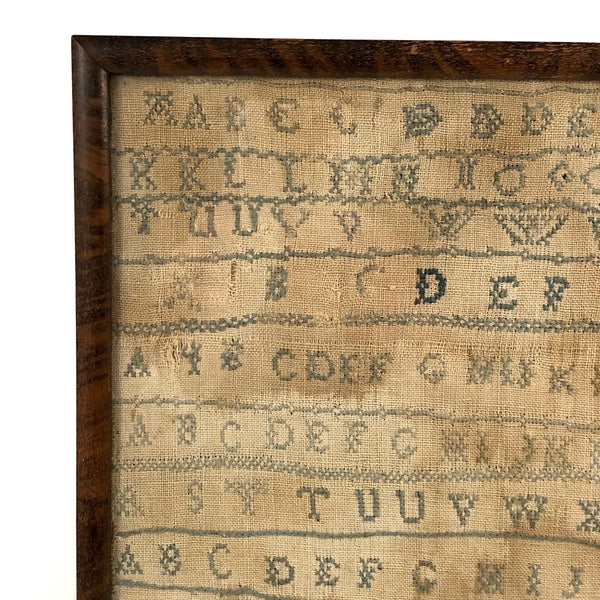 A A B E C C D D D E
K K L L M N N O
T U U V V W W
A B C D E F
A B C D E F G H I J K
A B C D E F G H I J K
R S T T U U V W X
A B C D E F G H I J